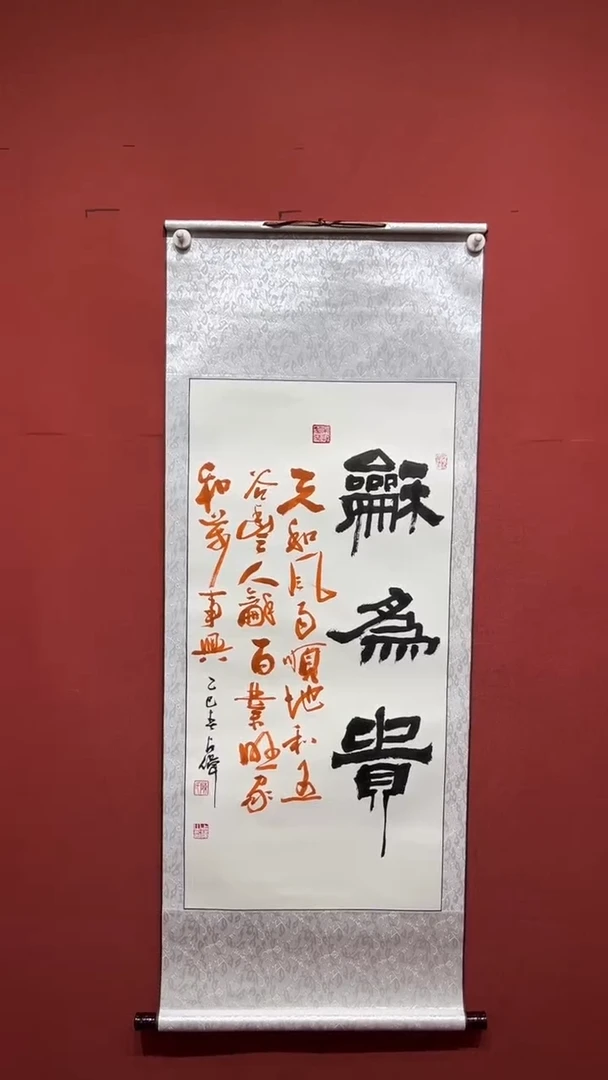 龢為貴
天和風雨順地和五
谷豐人龢百業旺家
和萬事興
乙巳春占偉